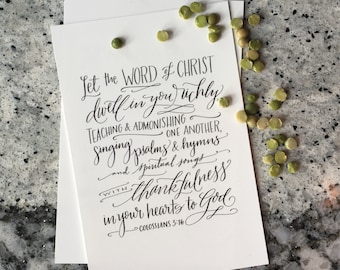 Let the WORD of CHRIST
dwell in you richly
TEACHING & ADMONISHING
ONE ANOTHER,
singing psalms & hymns
and spiritual songs
WITH thankfulness
in your hearts to God
COLOSSIANS 3:16